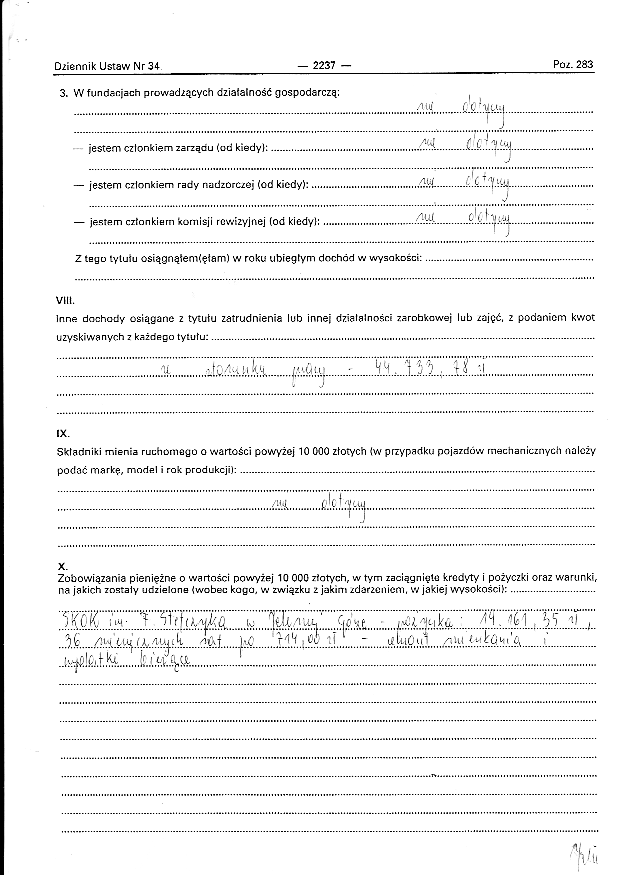 Dziennik Ustaw Nr 34
— 2237 —
Poz. 283
3. W fundacjach prowadzących działalność gospodarczą:
nie dotyczy
— jestem członkiem zarządu (od kiedy): nie dotyczy
— jestem członkiem rady nadzorczej (od kiedy): nie dotyczy
— jestem członkiem komisji rewizyjnej (od kiedy): nie dotyczy
Z tego tytułu osiągnąłem(ęłam) w roku ubiegłym dochód w wysokości:
VIII.
Inne dochody osiągane z tytułu zatrudnienia lub innej działalności zarobkowej lub zajęć, z podaniem kwot
uzyskiwanych z każdego tytułu:
ze stosunku pracy - 44.733,78 zł
IX.
Składniki mienia ruchomego o wartości powyżej 10 000 złotych (w przypadku pojazdów mechanicznych należy
podać markę, model i rok produkcji):
nie dotyczy
X.
Zobowiązania pieniężne o wartości powyżej 10 000 złotych, w tym zaciągnięte kredyty i pożyczki oraz warunki,
na jakich zostały udzielone (wobec kogo, w związku z jakim zdarzeniem, w jakiej wysokości):
SKOK im. F. Stefczyka w Jeleniej Górze - pożyczka: 19.161,35 zł,
36 miesięcznych rat po 714,00 zł - remont mieszkania i
wydatki bieżące